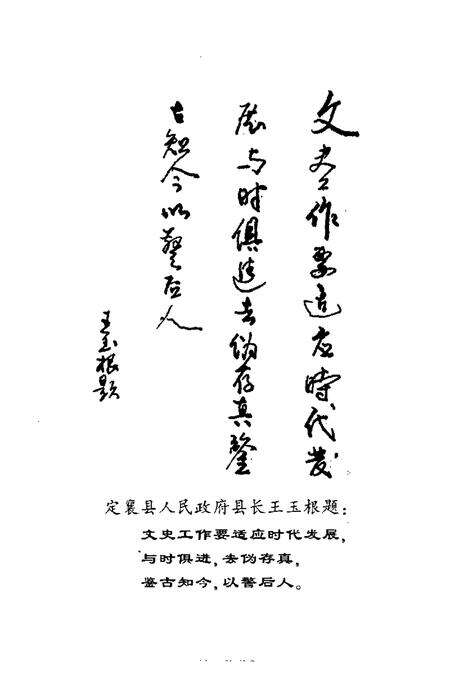 文史工作要适应時代发
展与时俱进去伪存真鉴
古知今以警后人
王玉根题
定襄县人民政府县长王玉根题：
文史工作要适应时代发展，
与时俱进，去伪存真，
鉴古知今，以警后人。